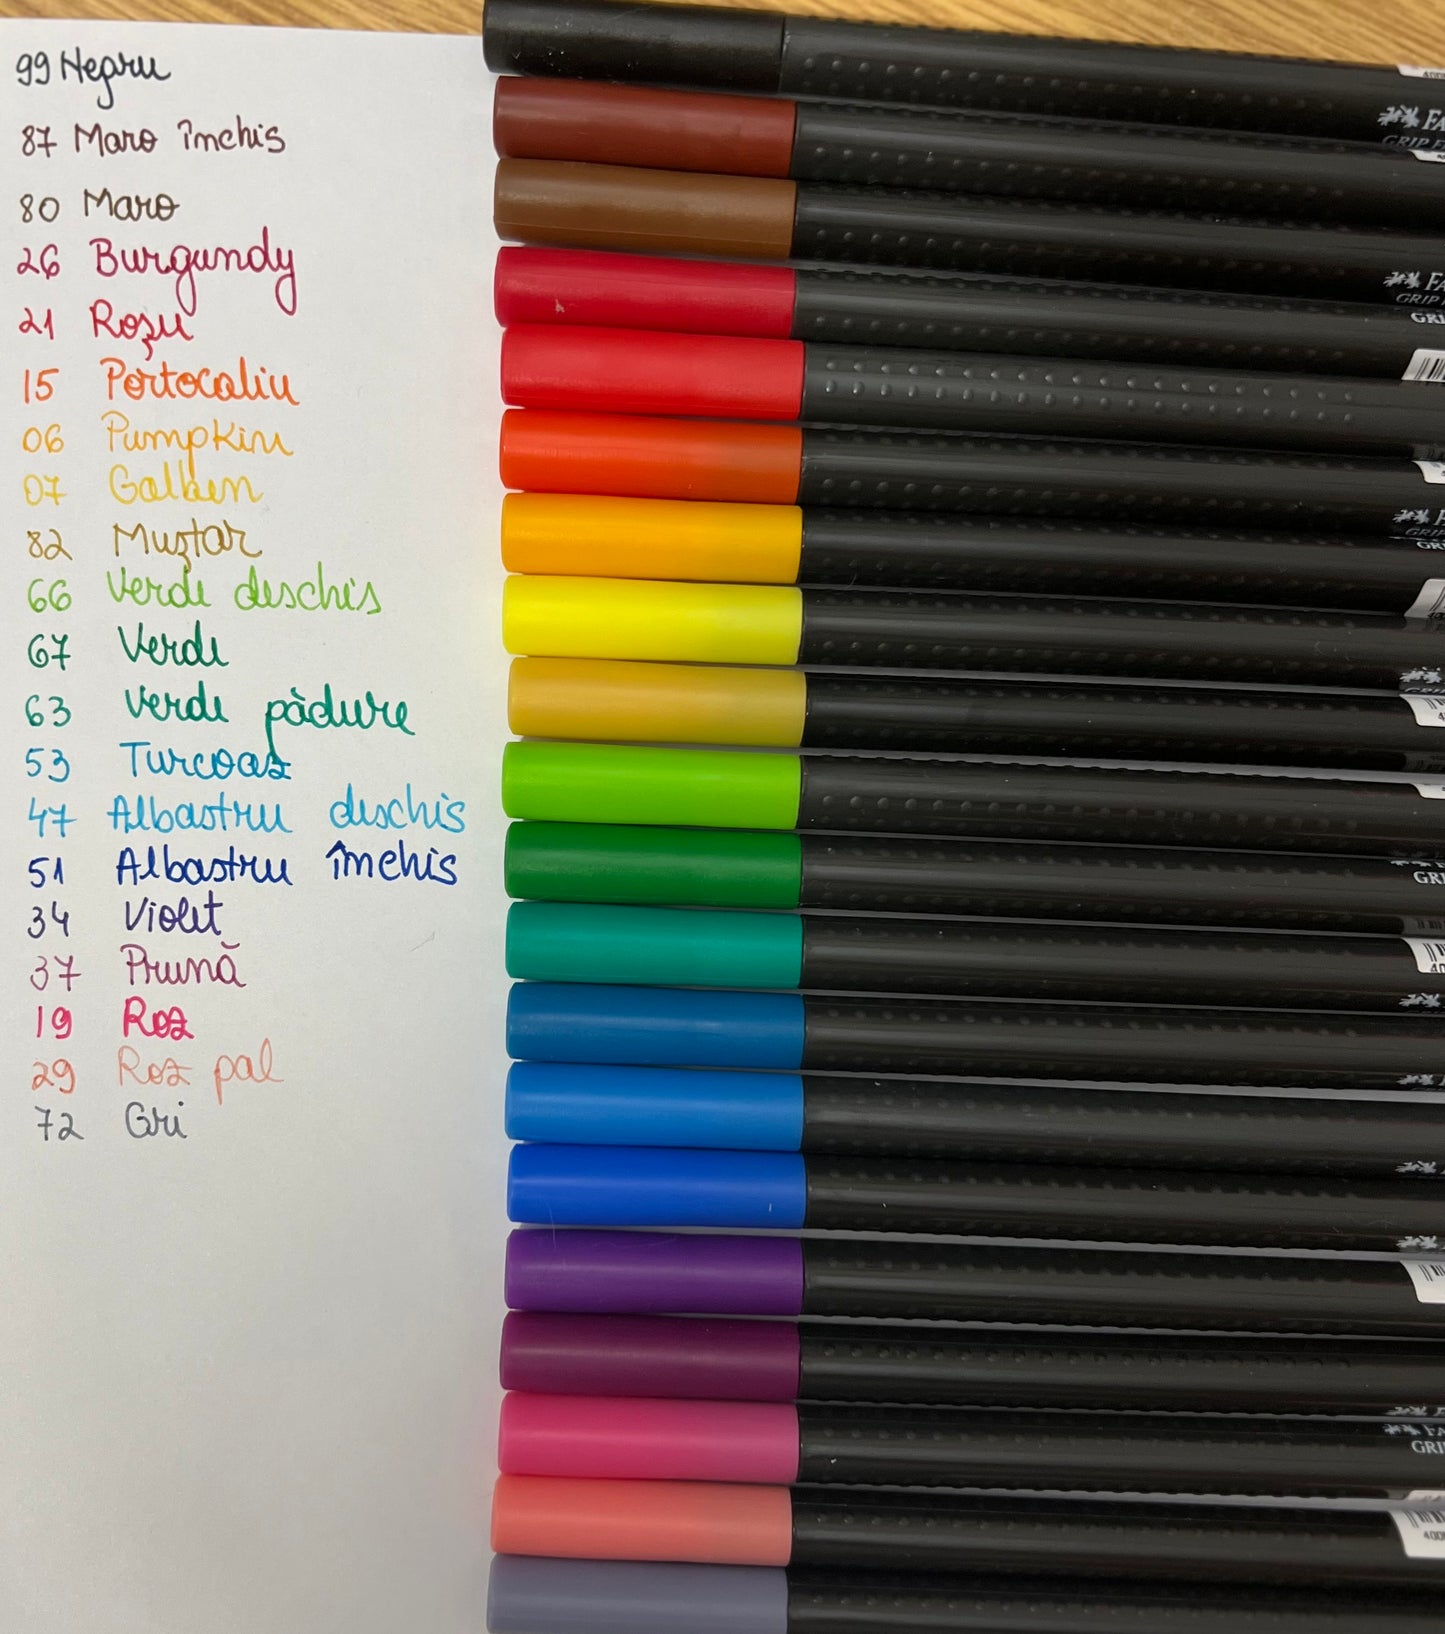 99 Negru
87 Maro închis
80 Maro
26 Burgundy
21 Roșu
15 Portocaliu
06 Pumpkin
07 Galben
82 Muștar
66 Verde deschis
67 Verde
63 Verde pàdure
53 Turcoaz
47 Albastru deschis
51 Albastru închis
34 Violet
37 Prună
19 Roz
29 Roz pal
72 Gri
FA
GRIP F
FA
GRIP
GRI
GRI
GRI
GRI